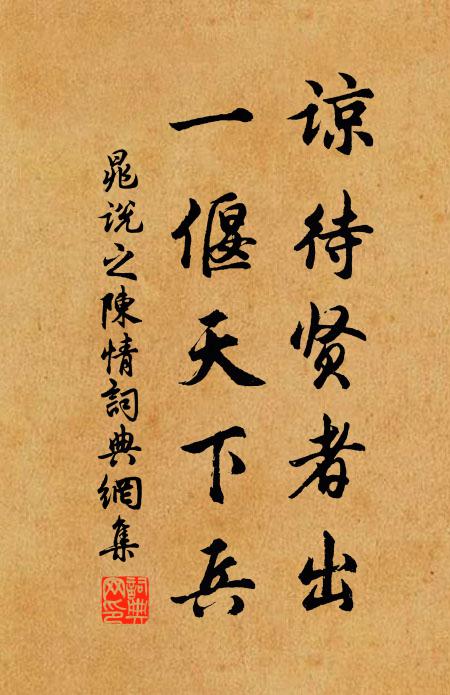 谅待贤者出
一偃天下兵
晁说之陳情詞典網集
詞典網印